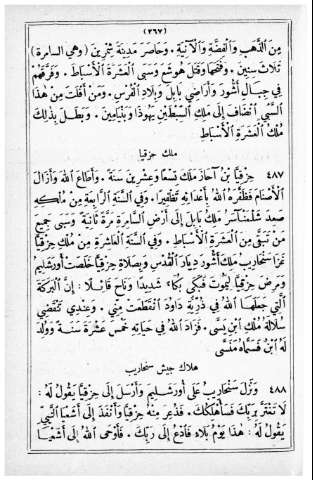 (٣٦٧)
مِنَ الذَّهَبِ وَالْفِضَّةِ وَالْآنِيَةِ. وَحَاصَرَ مَدِينَةَ شَمْرِينَ (وهي السامرة)
ثَلَاثَ سِنِينَ. وَفَتَحَهَا وَقَتَلَ هُوشَعَ وَسَبَى الْعَشَرَةَ الْأَسْبَاطَ. وَفَرَّقَهُمْ
فِي جِبَالِ أَثُّورَ وَأَرَاضِي بَابِلَ وَبِلَادِ الْفُرْسِ. وَمَنْ أَفْلَتَ مِنْ هٰذَا
السَّبْيِ انْضَافَ إِلَى مَلِكِ السِّبْطَيْنِ يَهُوذَا وَبَنْيَامِينَ. وَبَطَلَ بِذٰلِكَ
مُلْكُ الْعَشَرَةِ الْأَسْبَاطِ
ملك حزقيا
٤٨٧ حِزْقِيَّا بْنُ آحَازَ مَلَكَ تِسْعًا وَعِشْرِينَ سَنَةً. وَأَطَاعَ اللهَ وَأَزَالَ
الْأَصْنَامَ فَظَفَّرَهُ اللهُ بِأَعْدَائِهِ تَظْفِيرًا. وَفِي السَّنَةِ الرَّابِعَةِ مِنْ مُلْكِهِ
صَعِدَ شَلْمَنَأَسَرُ مَلِكُ بَابِلَ إِلَى أَرْضِ السَّامِرَةِ مَرَّةً ثَانِيَةً وَسَبَى جَمِيعَ
مَنْ تَبَقَّى مِنَ الْعَشَرَةِ الْأَسْبَاطِ. وَفِي السَّنَةِ الْعَاشِرَةِ مِنْ مُلْكِ حِزْقِيَّا
غَزَا سَنْحَارِيبُ مَلِكُ أَثُّورَ دِيَارَ الْقُدْسِ وَبِصَلَاةِ حِزْقِيَّا خَلَصَتْ أُورَشَلِيمُ
وَمَرِضَ حِزْقِيَّا لِيَمُوتَ فَبَكَى بُكَاءً شَدِيدًا وَنَاحَ قَائِلًا: إِنَّ الْبَرَكَةَ
الَّتِي جَعَلَهَا اللهُ فِي ذُرِّيَّةِ دَاوُدَ انْقَطَعَتْ مِنِّي. وَعِنْدِي تَنْقَضِي
سُلَالَةُ مُلْكِ ابْنِ يَسَّى. فَزَادَ اللهُ فِي حَيَاتِهِ خَمْسَ عَشْرَةَ سَنَةً وَوُلِدَ
لَهُ ابْنٌ فَسَمَّاهُ مَنَسَّى
هلاك جيش سنحاريب
٤٨٨ وَنَزَلَ سَنْحَارِيبُ عَلَى أُورَشَلِيمَ وَأَرْسَلَ إِلَى حِزْقِيَّا يَقُولُ لَهُ:
لَا تَغْتَرَّ بِرَبِّكَ فَسَأُهْلِكُكَ. فَذُعِرَ مِنْهُ حِزْقِيَّا وَأَنْفَذَ إِلَى أَشَعْيَا النَّبِيِّ
يَقُولُ لَهُ: هٰذَا يَوْمُ بَلَاءٍ فَادْعُ إِلَى رَبِّكَ. فَأَوْحَى اللهُ إِلَى أَشَعْيَا